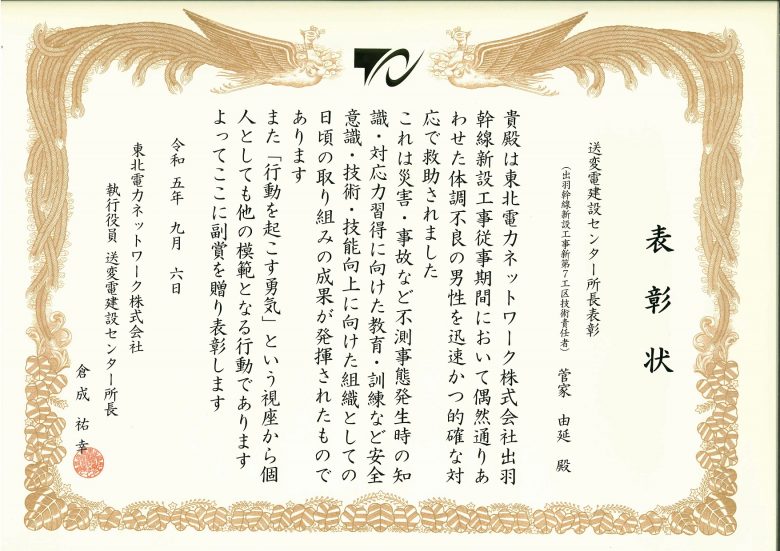 表彰状
送変電建設センター所長表彰
(出羽幹線新設工事新第7工区技術責任者) 管家 由延 殿
貴殿は東北電力ネットワーク株式会社出羽
幹線新設工事従事期間において偶然通りあ
わせた体調不良の男性を迅速かつ的確な対
応で救助されました
これは災害・事故など不測事態発生時の知
識・対応力習得に向けた教育・訓練など安全
意識・技術・技能向上に向けた組織としての
日頃の取り組みの成果が発揮されたもので
あります
また「行動を起こす勇気」という視座から個
人としても他の模範となる行動であります
よってここに副賞を贈り表彰します
令和 五年 九月 六日
東北電力ネットワーク株式会社
執行役員 送変電建設センター所長
倉成 祐幸